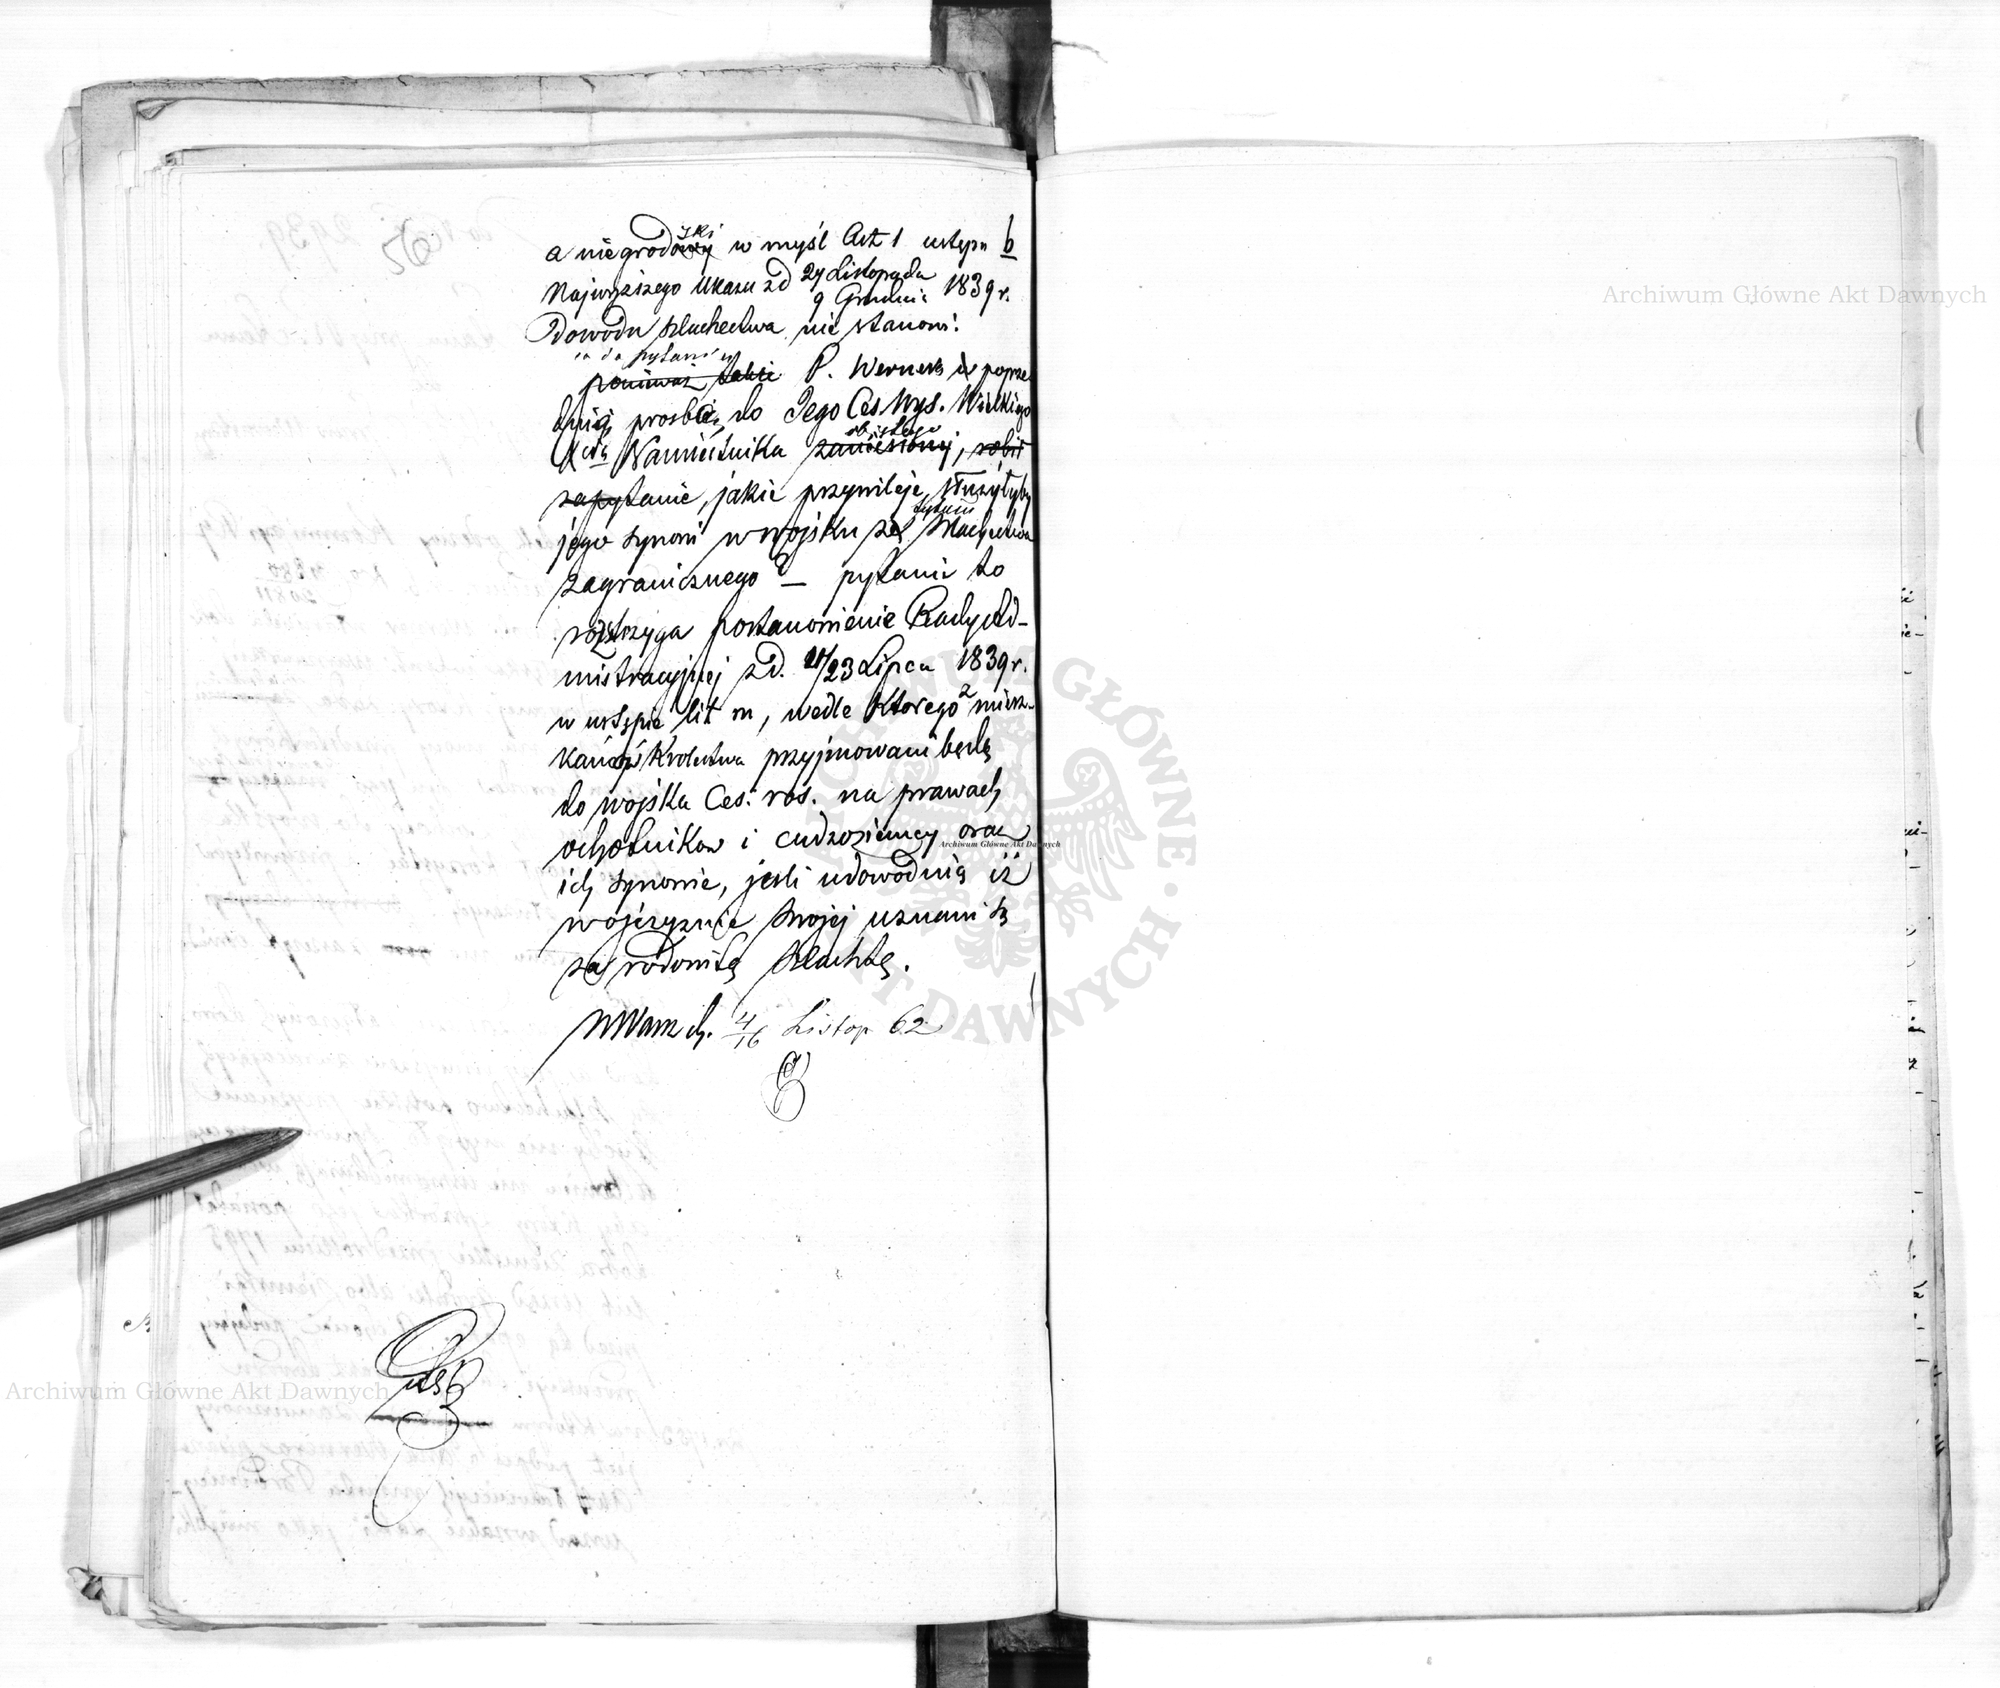 a nie grodowy ski w myśl Art 1 ustępu b
Najwyższego Ukazu z d 27 Listopada
9 Grudnia 1839 r.
Dowodu szlachectwa nie stanowi.
co do pytania w
ponieważ także P. Werner w poprze
dnią prosbą, do Jego Ces Wys. Wielkiego
Xcia Namiestnika zaniesionej, robił
zapytanie, jakie przywileje służyłyby
jego synowi w wojsku ze tytułu szlachectwa
zagranicznego – pytanie to
rozstrzyga postanowienie Rady Ad-
mistracyjnej z d. 11/23 Lipca 1839 r.
w ustępie lit m, wedle którego miesz-
kańcy Królestwa przyjmowani będą
do wojska Ces. ros. na prawach
ochotników i cudzoziemcy oraz
ich synowie, jeśli udowodnią iż
w ojczyznie swojej uznani są
za rodowitą szlachtę.
w Warsz d. 4/16 Listop 62
Archiwum Główne Akt Dawnych
Archiwum Główne Akt Dawnych
Archiwum Główne Akt Dawnych
ARCHIWUM GŁÓWNE AKT DAWNYCH